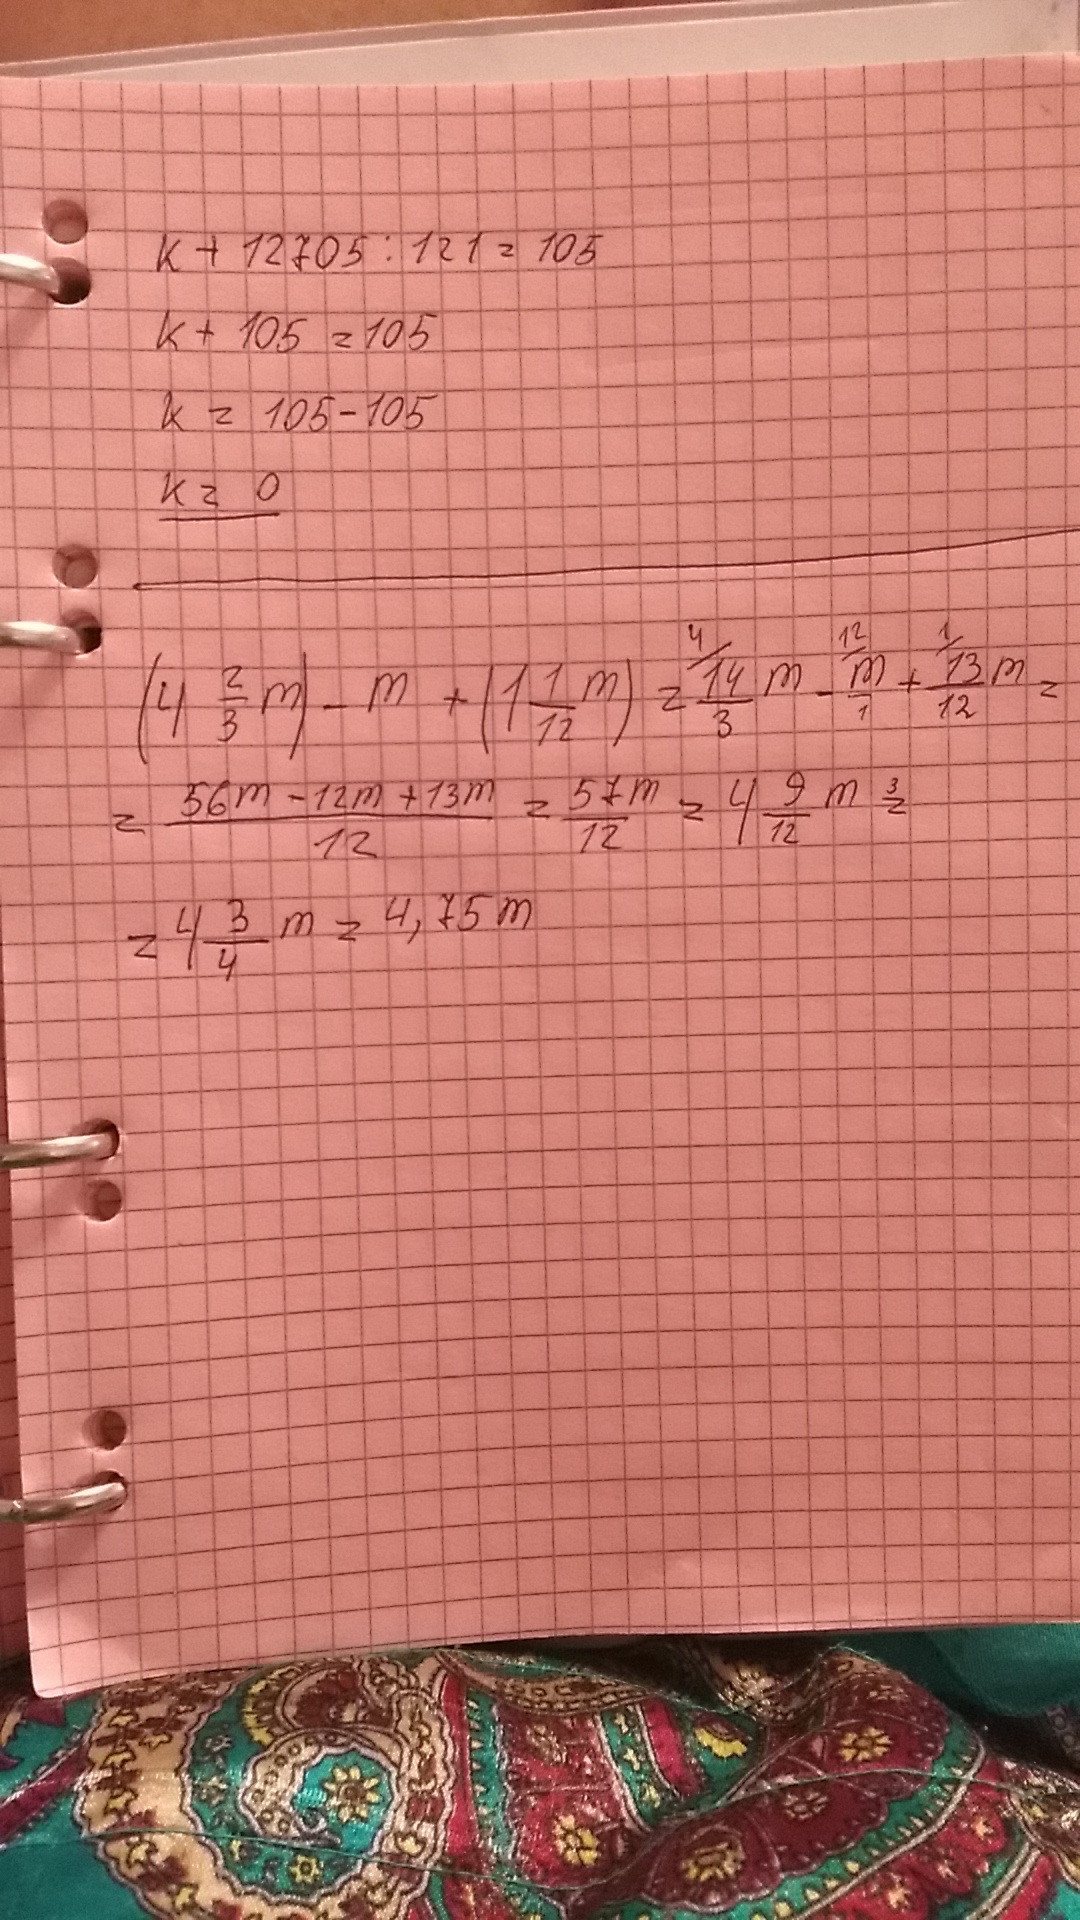 k + 12705 : 121 = 105
k + 105 = 105
k = 105 - 105
k = 0
(4 2/3 m) - m + (1 1/12 m) = 4/ 14/3 m - 12/ m/1 + 1/ 13/12 m =
= 56m - 12m + 13m / 12 = 57m / 12 = 4 9/12 m 3=
= 4 3/4 m = 4,75m